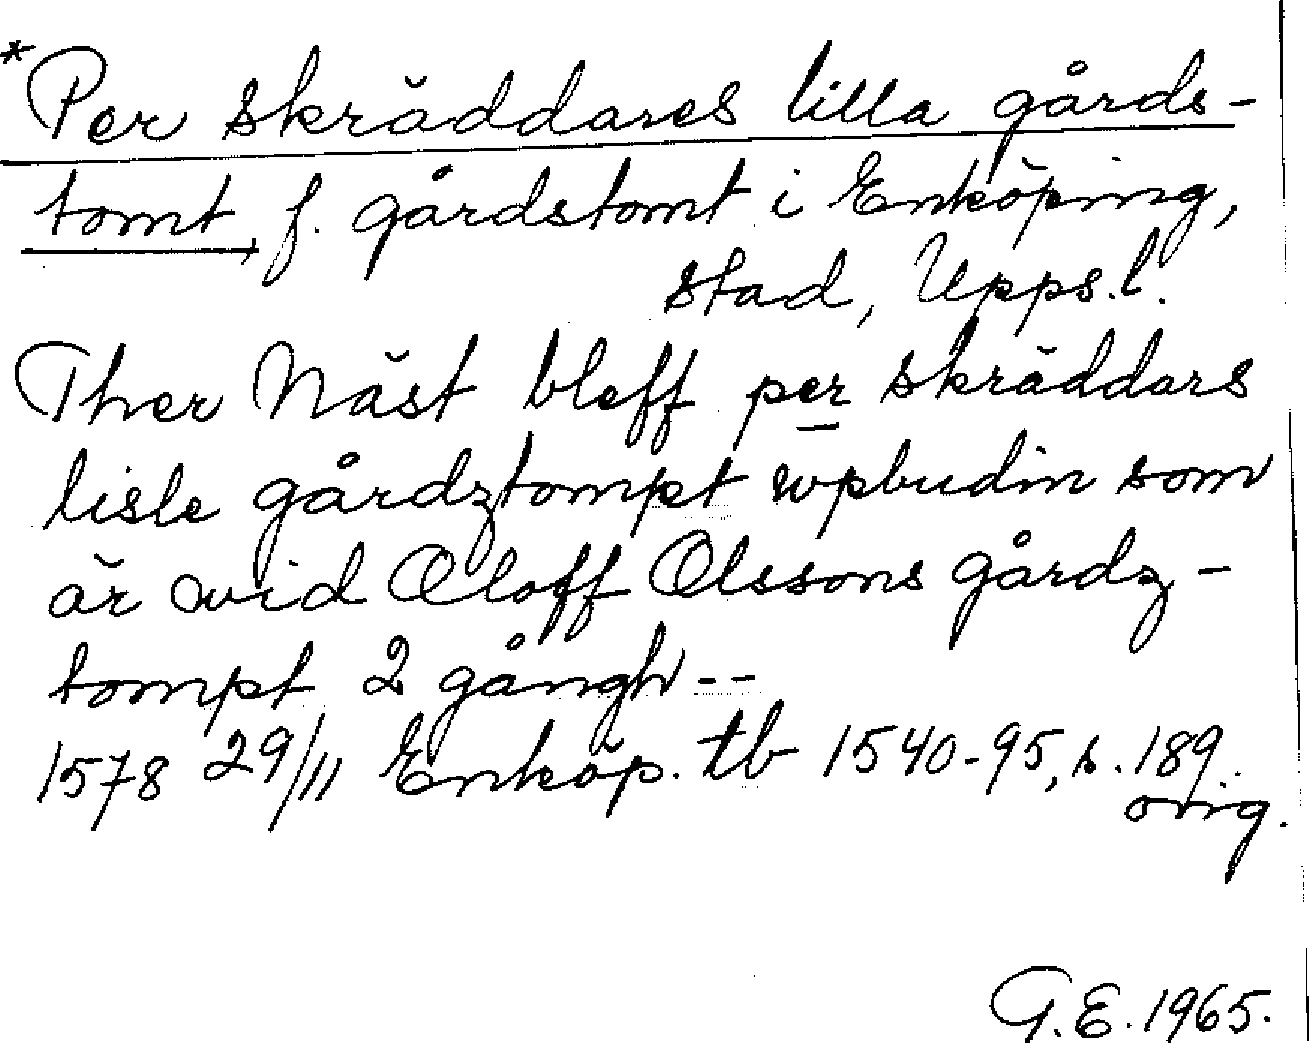 *Per skräddares lilla gårds-
tomt, f. gårdstomt i Enköping,
stad, Upps.l.
Ther Näst bleff per skräddars
lisle gårdztompt wpbudin som
är wid Oloff Olssons gårdz-
tompt 2 gångh --
1578 29/11 Enköp. tb 1540-95, s. 189.
orig.
G.E. 1965.